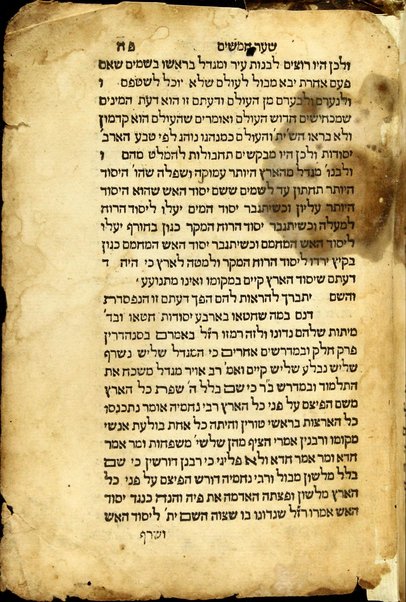 שער חמשים פח
ולכן היו רוצים לבנות עיר ומגדל בראשו בשמים שאם
פעם אחרת יבא מבול לעולם שלא יוכל לשטפם ו
ולנערם ולבערם מן העולם ודעתם זו הוא דעת המינים
שמכחישים חדוש העולם ואומרים שהעולם הוא קדמון
ולא בראו הש״ית והעולם כמנהגו נוהג לפי טבע הארב׳
יסודות ולכן היו מבקשים תחבולות להמלט מהם ו
ולבנו׳ מגדל מהארץ היותר עמוקה ושפלה שהו׳ היסוד
היותר תחתון עד לשמים ששם יסוד האש שהוא היסוד
היותר עליון וכשיתגבר יסוד המים יעלו ליסוד הרוח
למעלה וכשיתגבר יסוד הרוח המקר כגון בחורף יעלו
ליסוד האש המחמם וכשיתגבר יסוד האש המחמם כגון
בקיץ ירדו ליסוד הרוח המקר ולמטה לארץ כי היה ד
דעתם שיסוד הארץ קיים במקומו ואינו מתנועע׳
והשם יתברך להראות להם הפך דעתם זו הנפסדת
דנם במה שחטאו בארבע יסודות חטאו ובד׳
מיתות שלהם נדונו ולזה רמזו רז״ל באמרם בסנהדרין
פרק חלק ובמדרשים אחרים כי המגדל שליש נשרף
שליש נבלע שליש קיים ואמ׳ רב אויר מגדל משכח את
התלמוד ובמדרש ב״ר כי שם בלל ה׳ שפת כל הארץ
משם הפיצם על פני כל הארץ רבי נחמיה אומר נתכנסו
כל הארצות בראשי טורין והיתה כל אחת בולעת אנשי
מקומו ורבנין אמרי הציף מהן שלשי׳ משפחות ומר אמר
חדא ומר אמר חדא ולא פליגי כי רבנן דורשין כי שם
בלל מלשון מבול ורבי נחמיה דורש הפיצם על פני כל
הארץ מלשון ופצתה האדמה את פיה והנה כנגד יסוד
האש אמרו רז״ל שנדונו בו שצוה השם ית׳ ליסוד האש
ושרף